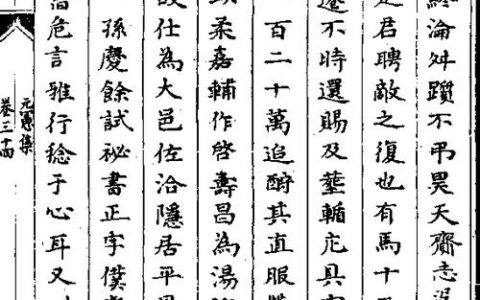 淪舛躓不弔昊天齋志
君聘敵之復也有馬十
不時還賜及塟輴庀具
百二十萬追酧其直服
柔嘉輔作啓壽昌為湯
仕為大邑佐洽隱居平
孫慶餘試祕書正字僕
危言雅行稔于心耳又
元憲集
卷三十四